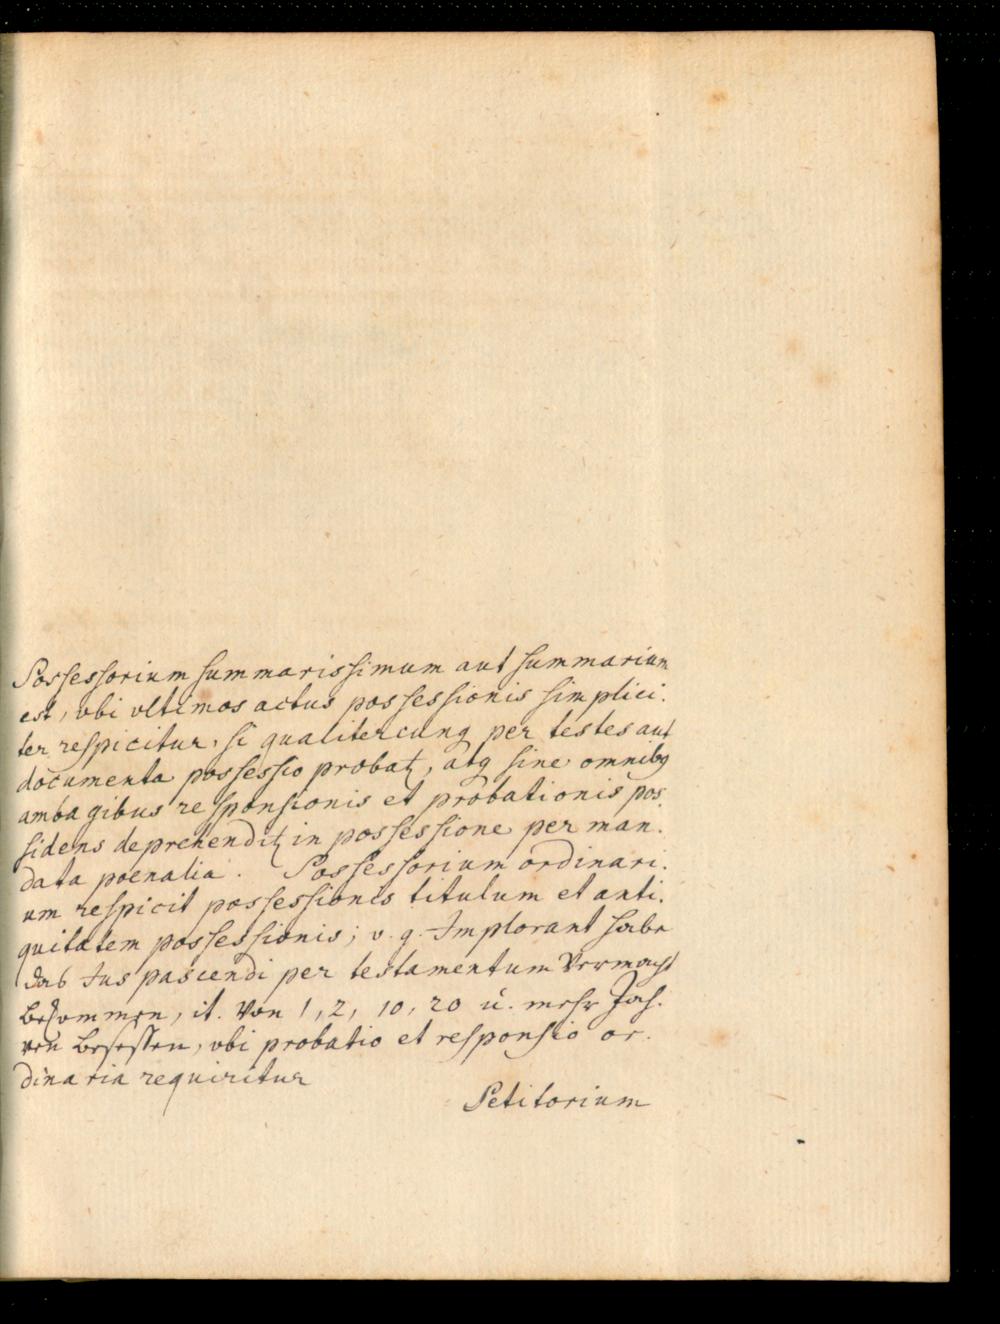 Possessorium summarissimum aut summarium
est, vbi vltimos actus possessionis simplici.
ter respicitur, si qualitercunq per testes aut
documenta possessio probatz, atq sine omnibq
ambagibus responsionis et probationis pos.
sidens deprehenditz in possessione per man.
data poenalia. Possessorium ordinari.
um respicit possessionis titulum et anti.
quitatem possessionis; v. g. Implorant habe
das Jus pascendi per testamentum Vermacht
bekommen, it. von 1, 2, 10, 20 u. mehr Jah.
ren besessen, vbi probatio et responsio or.
dinaria requiritur
Petitorium